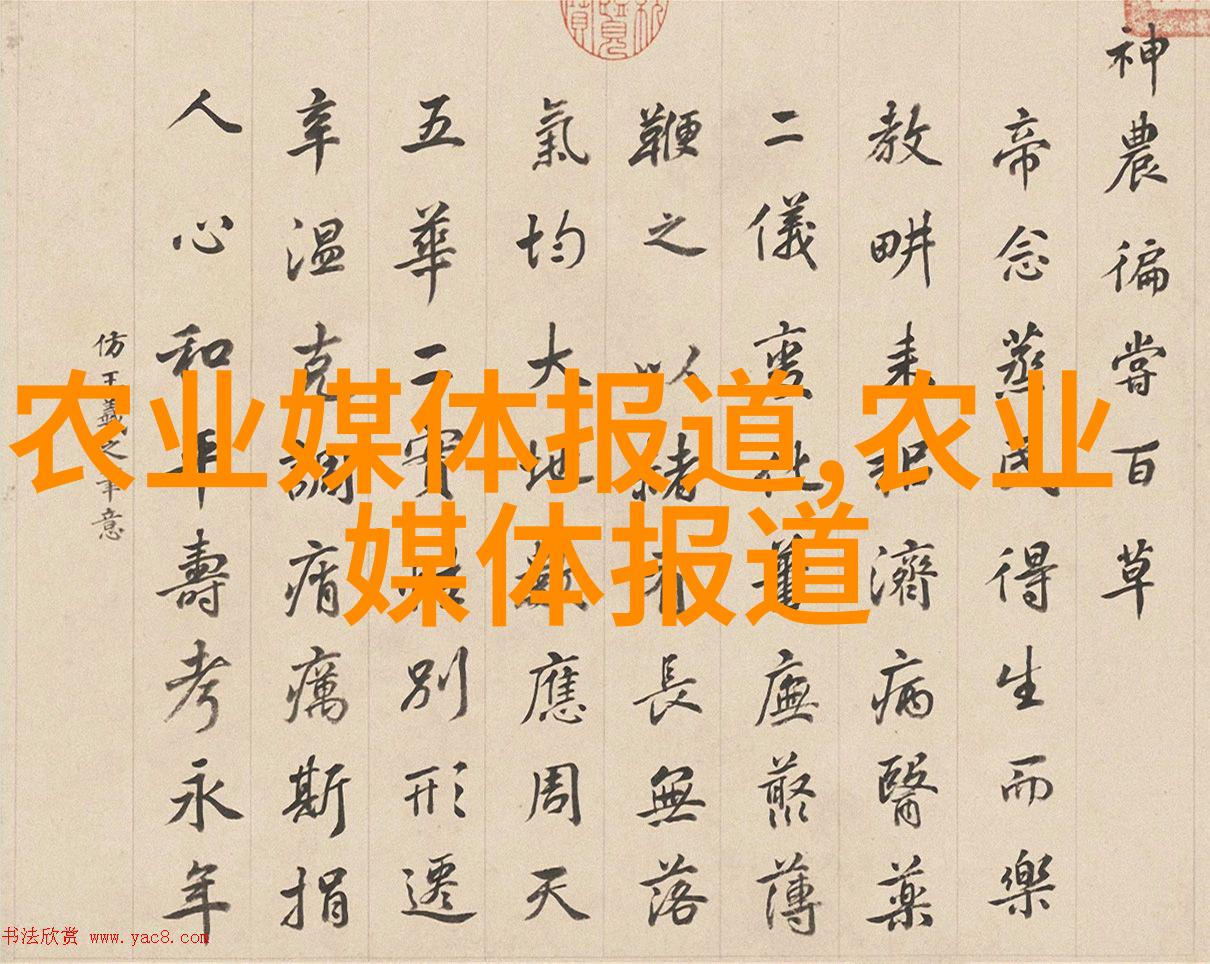 神農徧嘗百草
帝念蒸民得生而樂
教畊耒耜濟病醫藥
二儀
鞭之以赭有長無落
氣均大地應周天
五華二實別形遷
辛温克調痟癘斯捐
人心和平壽考永年
仿王羲之筆意
农业媒体报道,农业
媒体报道
书法欣赏 www.yac8.com